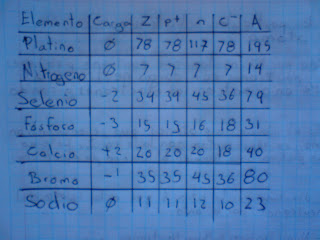 Elemento | Carga | Z | p+ | n | e- | A
Platino | Ø | 78 | 78 | 117 | 78 | 195
Nitrogeno | Ø | 7 | 7 | 7 | 7 | 14
Selenio | -2 | 34 | 34 | 45 | 36 | 79
Fósforo | -3 | 15 | 15 | 16 | 18 | 31
Calcio | +2 | 20 | 20 | 20 | 18 | 40
Bromo | -1 | 35 | 35 | 45 | 36 | 80
Sodio | Ø | 11 | 11 | 12 | 10 | 23